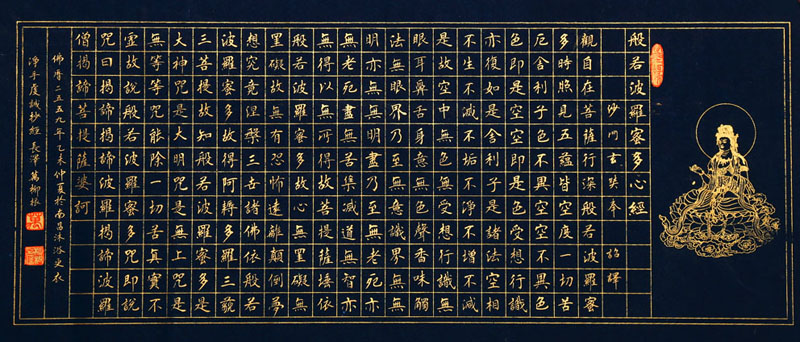 般若波羅蜜多心經
沙門玄奘奉 詔譯
觀自在菩薩行深般若波羅蜜
多時照見五蘊皆空度一切苦
厄舍利子色不異空空不異色
色即是空空即是色受想行識
亦復如是舍利子是諸法空相
不生不滅不垢不淨不增不減
是故空中無色無受想行識無
眼耳鼻舌身意無色聲香味觸
法無眼界乃至無意識界無無
明亦無無明盡乃至無老死亦
無老死盡無苦集滅道無智亦
無得以無所得故菩提薩埵依
般若波羅蜜多故心無罣礙無
罣礙故無有恐怖遠離顛倒夢
想究竟涅槃三世諸佛依般若
波羅蜜多故得阿耨多羅三藐
三菩提故知般若波羅蜜多是
大神咒是大明咒是無上咒是
無等等咒能除一切苦真實不
虛故說般若波羅蜜多咒即說
咒曰揭諦揭諦波羅揭諦波羅
僧揭諦菩提薩婆訶
佛曆二五五九年乙未仲夏於南昌沐浴更衣
淨手虔誠抄經 長澤 萬柳根